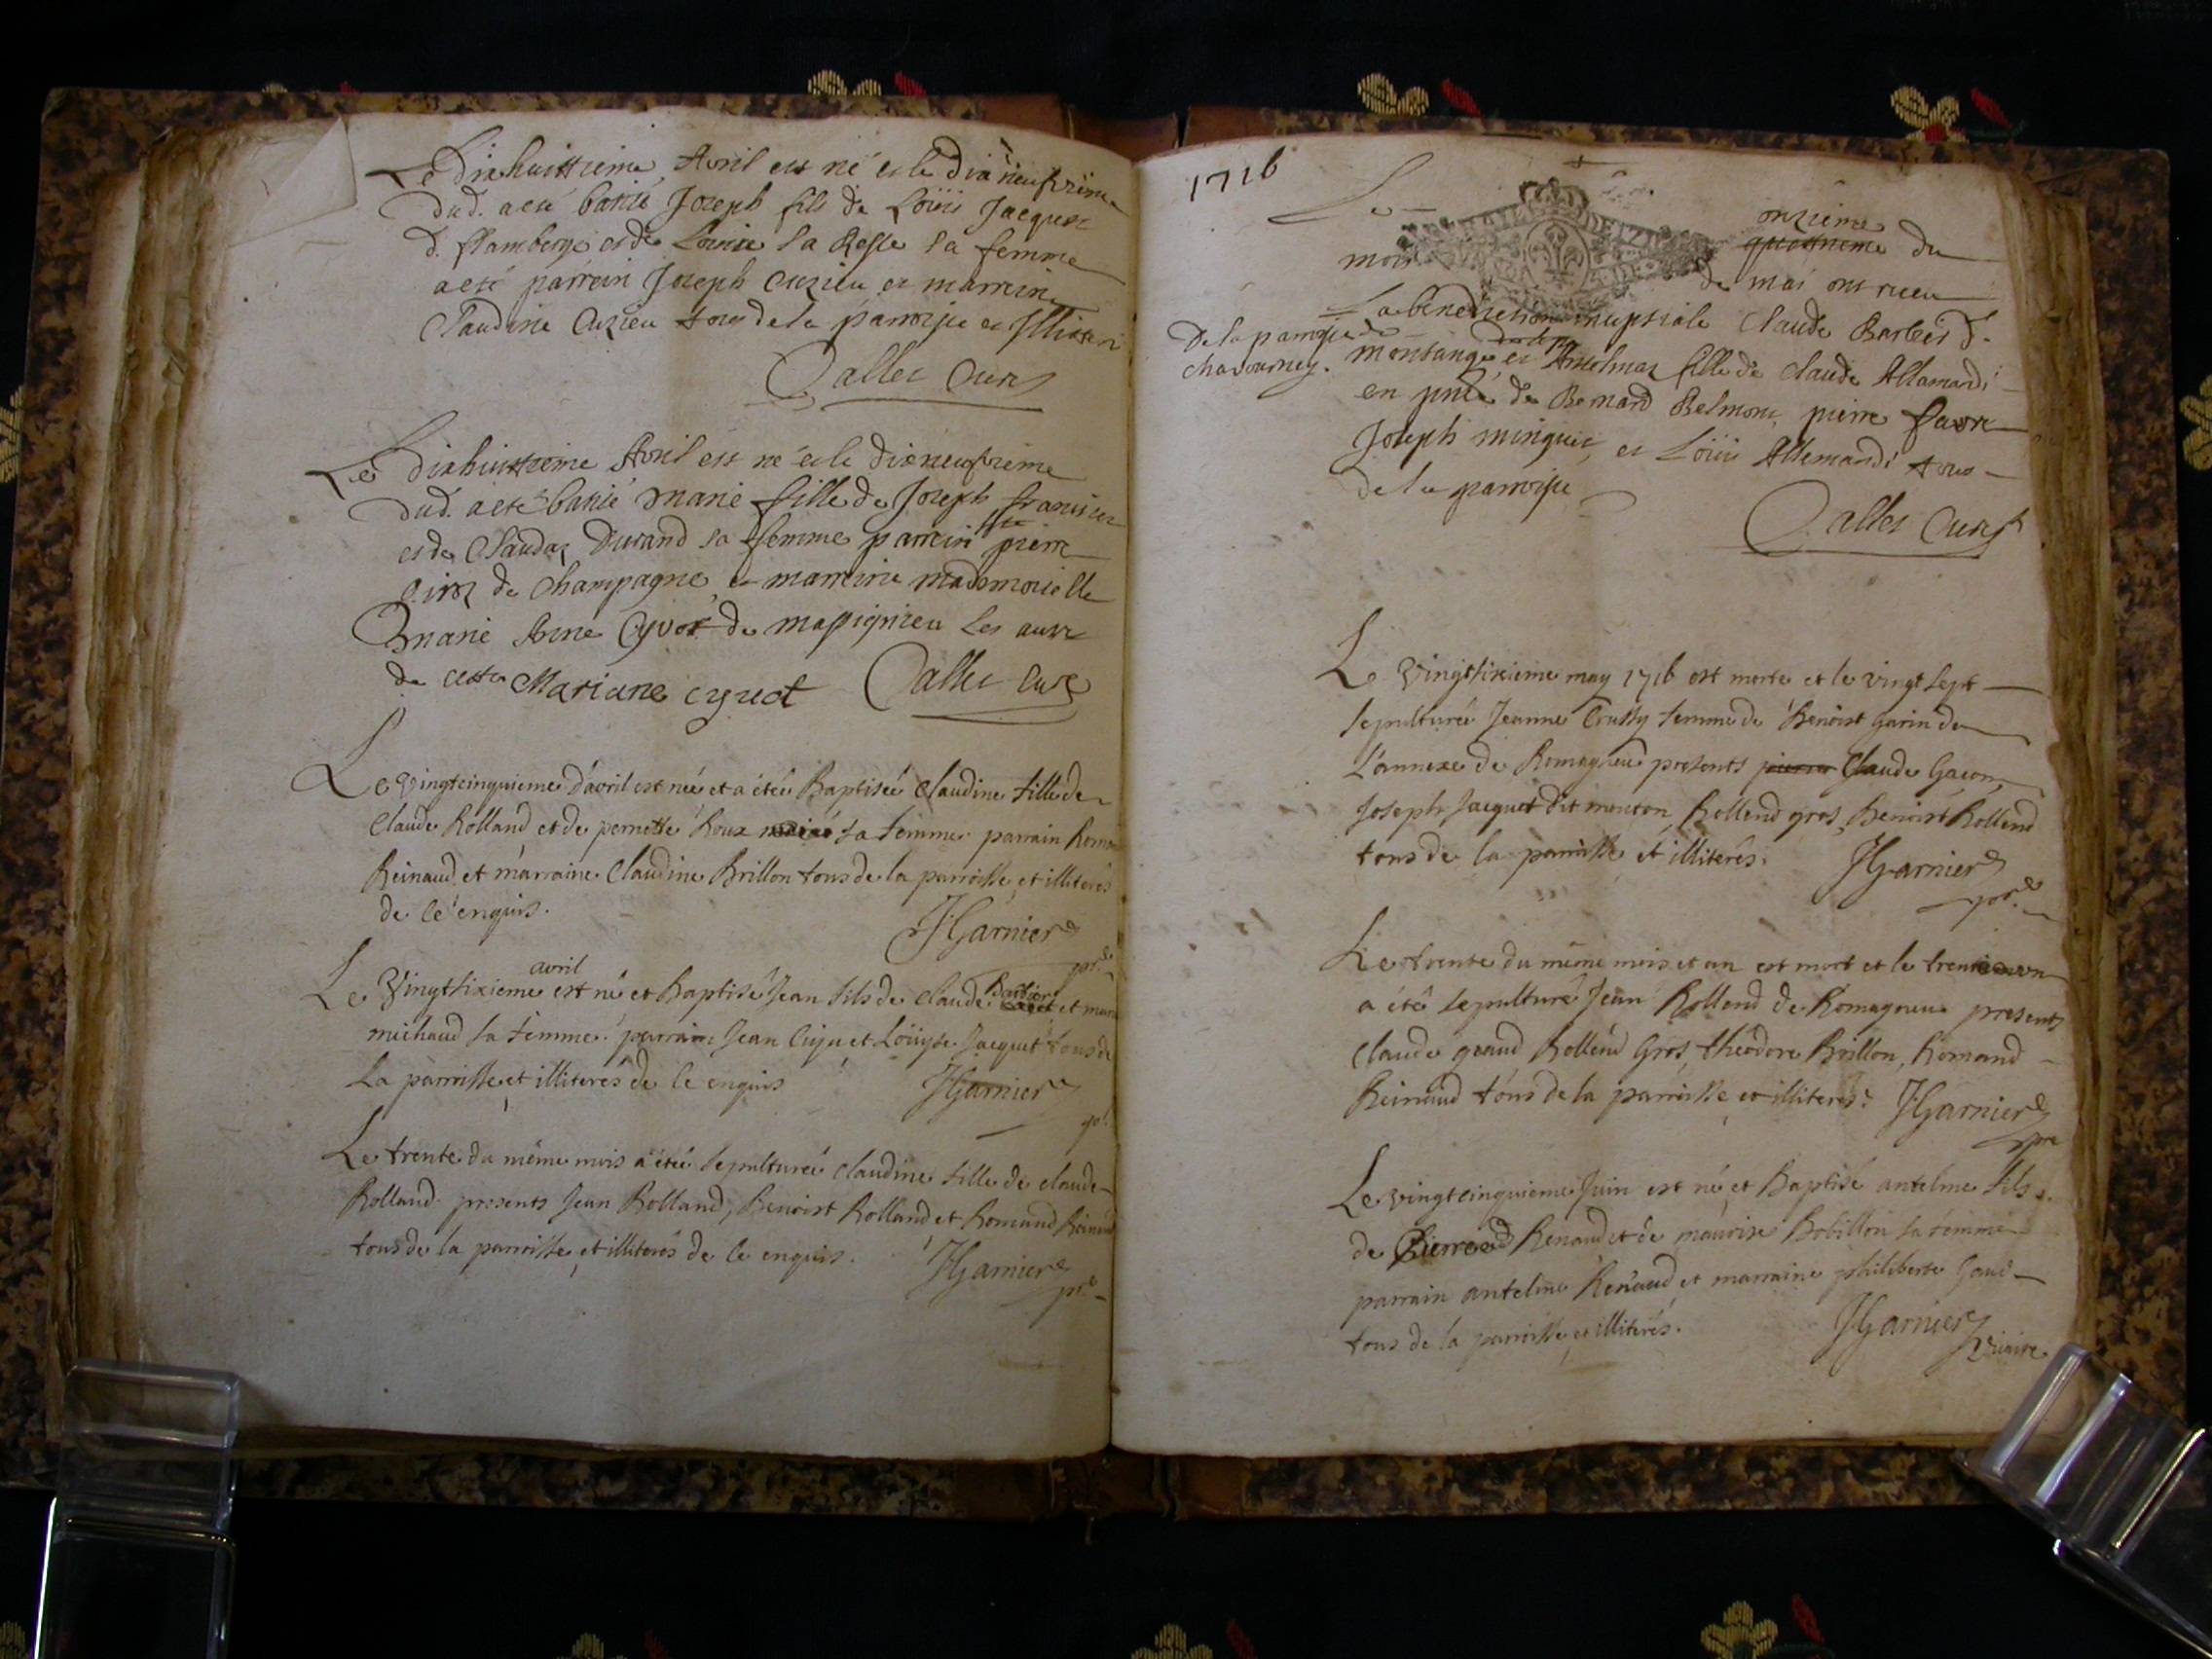 Le Dixhuittieme Avril est né et le dix neufvième
dud. a esté batisé Joseph fils de Loüis Jacques
d. flamberge et de Louise la Resse sa femme
a esté parrein Joseph Cuzieu et marreine
Claudine Cuzieu tous de la parroisse et Illitteré
Dallet Curé
Le Dixhuittieme Avril est né et le dixneufvieme
dud. a esté batisé Marie fille de Joseph francisez
et de Claudaz Durand sa femme parrein pierre
de Champagne, et marreine madsmoiselle
Marie Anne Cyvot de massignieu les autre
de cette Mariane cyuot Dallet Curé
Le Vingtcinquieme d'avril est née et a étée Baptisée Claudine fille de
Claude Rolland et de pernette Roux sa femme. parrain
Reinaud et marraine Claudine Brillon tous de la parroisse, et illiterés
de ce enquis.
JGarnier
ptre
avril
Le Vingtsixieme est né et Baptisé Jean fils de Claude Barbier et
michaud sa femme. parrain Jean Cuju et Loüyse Jacquet tous de
La parroisse, et illiterés de ce enquis JGarnier
Le trente du même mois a étée sepulturée Claudine fille de claude
Rolland presents Jean Rolland, Benoist Rolland et Romand Reinaud
tous de la parroisse, et illiterés de ce enquis. JGarnier
ptre
1716
onzieme
Le quatrieme du
mois de mai ont receu
La benediction nuptiale Claude Barbés d.
De la parroisse de
chavourney. montange, et Anthelmaz fille de Claude Allamardi
en pnce de Bernard Belmont, pierre favre
Joseph minguet, et Loüis Allemandi tous
de la parroisse
Dallet Curé
Le Vingtsixieme may 1716 est morte et le vingt sept
sepulturée Jeanne Trussy femme de Benoist Garin de
L'annexe de Romagnieu presents pierre Claude Gacon,
Joseph Jacquet dit mouton, Rollend gros, Benoist Rollend
tous de la parroisse et illiterés. JGarnier
ptre
Le trente du même mois et an est mort et le trente un
a été sepulturé Jean Rollend de Romagnieu presents
Claude grand Rollend Gros, théodore Brillon, Romand
Reinaud tous de la parroisse et illiterés. JGarnier
ptre
Le vingtcinquieme Juin est né et Baptisé antelme fils
de Pierre Renaud et de maurise Bobillon sa femme
parrain antelme Renaud et marraine philiberte
tous de la parroisse et illiterés. JGarnier
Vicaire